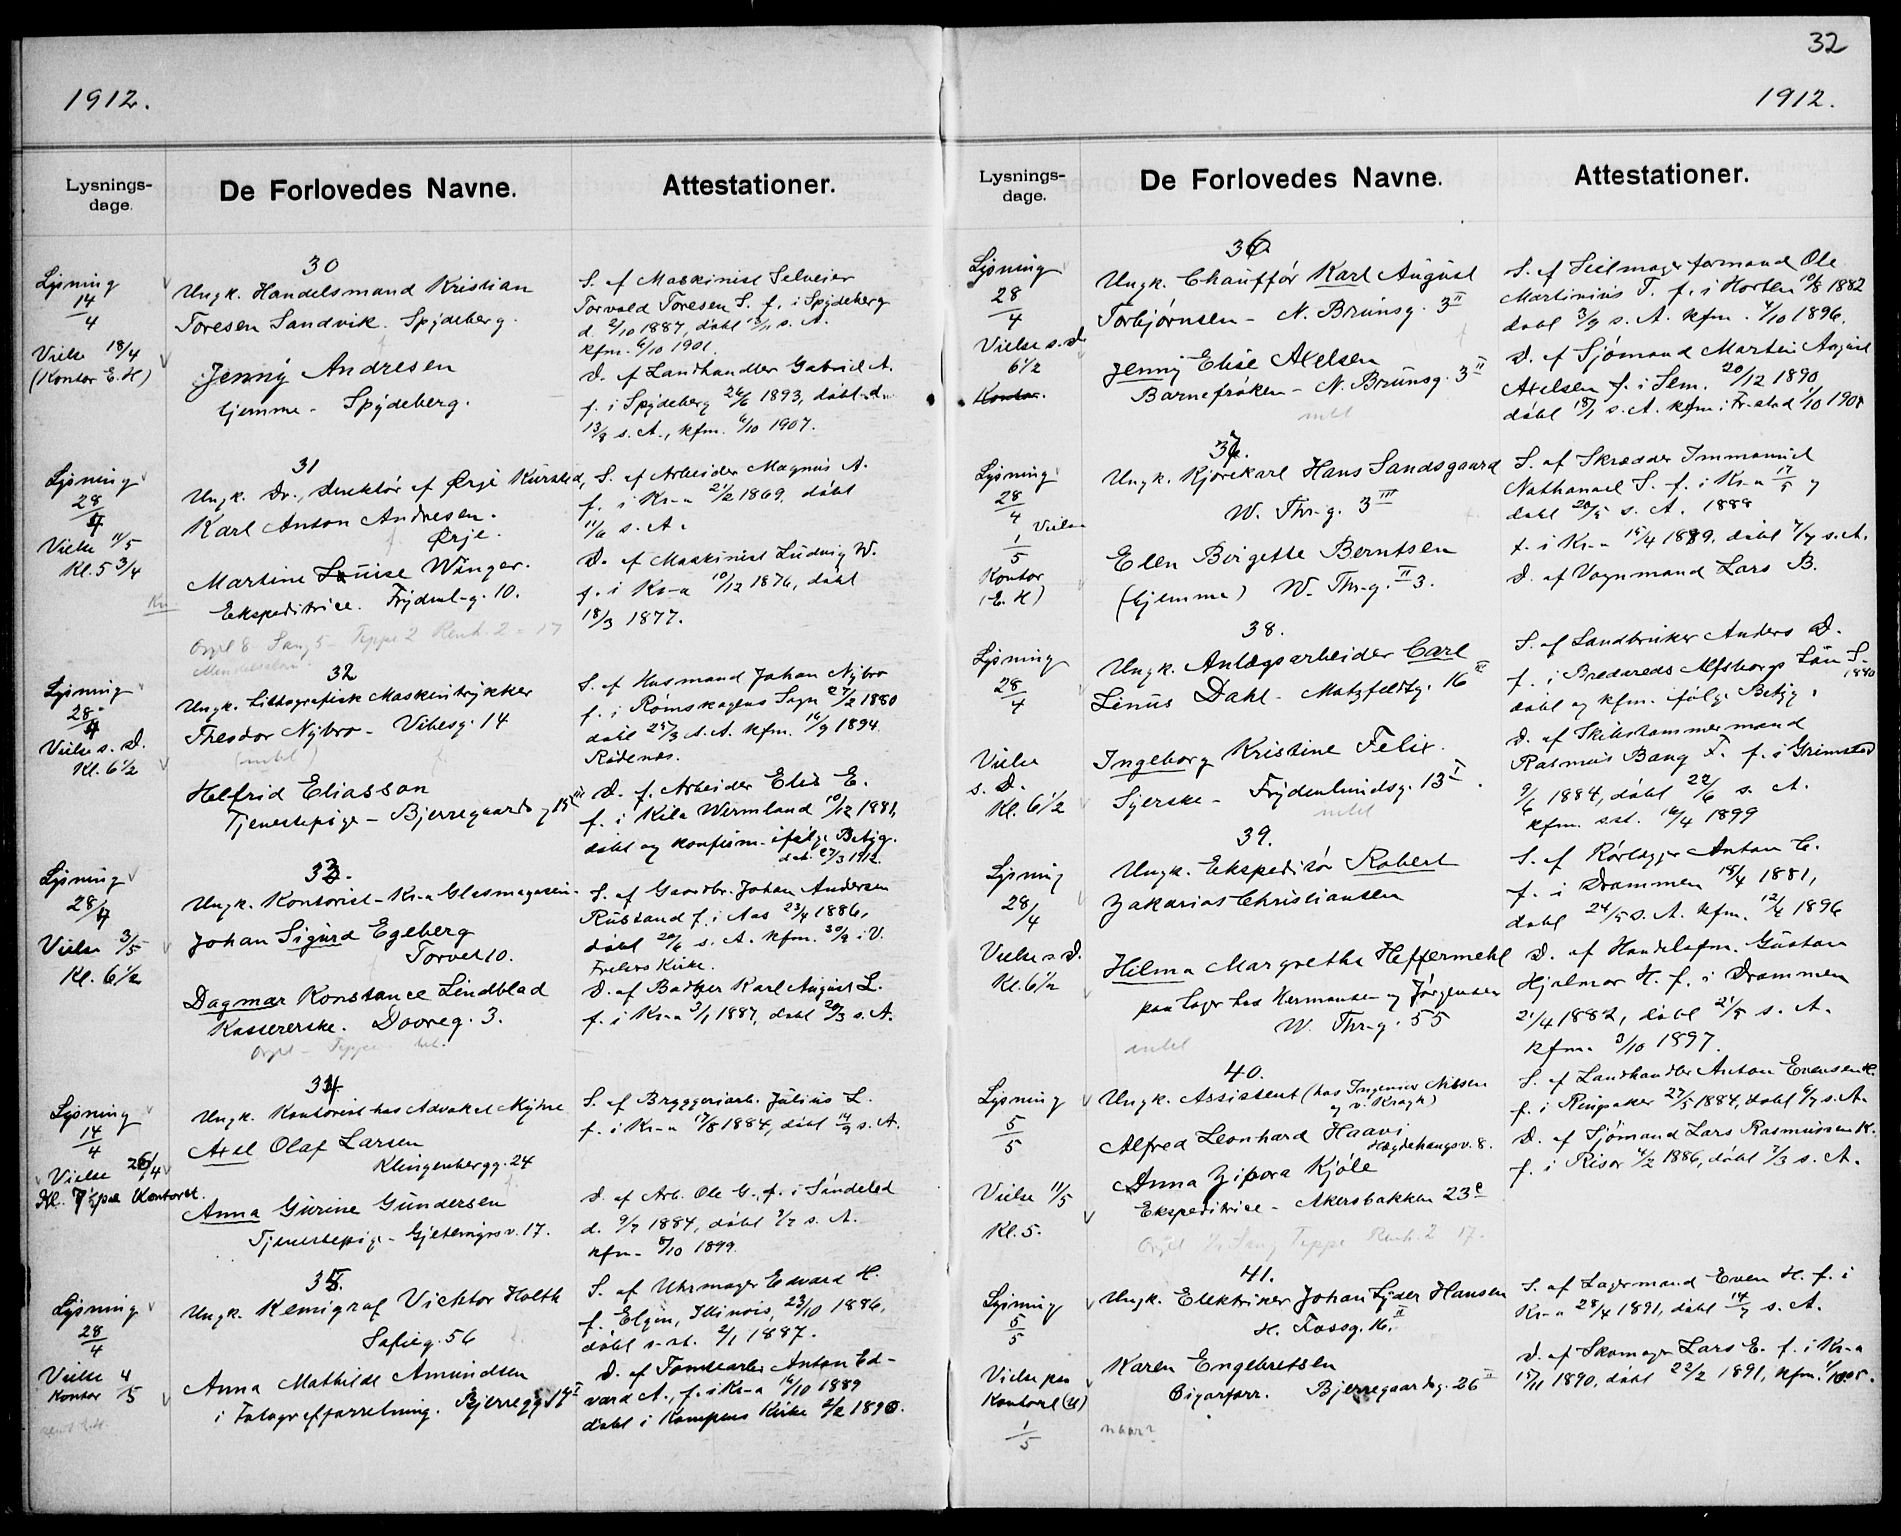 1912.
Lysnings-
dage.
De Forlovedes Navne.
Attestationer.
30
Lysning
14/4
Vielse 18/4
(Kontor E. H)
Ungk. Handelsmand Kristian
Toresen Sandvik. Spydeberg.
Jenny Andresen
hjemme - Spydeberg.
S. af Maskinist Selveier
Torvald Toresen S. f. i Spydeberg
d. 2/10 1887, døbt s. A.
kfm. 6/10 1901
D. af Landhandler Gabriel A.
f. i Spydeberg 26/6 1893, døbt
13/8 s. A., kfm. 6/10 1907.
31
Lysning
28/4
Vielse 11/5
Kl. 5 3/4
Ungk. Dr., Direktør af Ørje Kursted,
Karl Anton Andresen.
Ørje.
Martine Louise Winger.
Ekspeditrice. Frydenl-g. 10.
Orgel 8 Sang 5 - Teppe 2 Renh. 2 = 17
Mendelsohn.
S. af Arbeider Magnus A.
f. i Kr-a 21/2 1869, døbt
11/6 s. A.
D. af Maskinist Ludvig W.
f. i Kr-a 10/12 1876, døbt
18/3 1877.
32
Lysning
28/4
Vielse s. D.
Kl. 6 1/2
Ungk. Lithografisk Maskintrykker
Theodor Nybro - Vibesg. 14
(intet)
Helfrid Eliasson
Tjenestepige - Bjerregaardsg 15 III
S. af Husmand Johan Nybro
f. i Rømskogens Sogn 27/2 1880
døbt 25/3 s. A. kfm. 16/9 1894
Rødenes.
D. f. Arbeider Elis E.
f. i Kila Wermland 10/12 1881,
døbt og konfirm. ifølge Betyg.
dat. 27/3 1912.
33.
Lysning
28/4
Vielse 3/5
Kl. 6 1/2
Ungk. Kontorist - Kr-a Glasmagasin -
Johan Sigurd Egeberg
Torvet 10.
Dagmar Konstance Lindblad
Kassererske. Dovreg. 3.
Orgel - Teppe
S. af Gaardbr. Johan Andersen
Rustand f. i Aas 23/4 1886,
døbt 20/6 s. A. kfm. 30/9 i V.
Frelsers Kirke.
D. af Bødker Karl August L.
f. i Kr-a 3/1 1887, døbt 20/3 s. A.
34
Lysning
14/4
Vielse 26/4
Kl. 7 1/2 paa Kontoret.
Ungk. Kontorist hos Advokat Myhre
Axel Olaf Larsen
Klingenbergg. 24
Anna Gurine Gundersen
Tjenestepige - Gjetemyrsv. 17.
S. af Bryggeriarb. Julius L.
f. i Kr-a 17/8 1884, døbt 14/9 s. A.
D. af Arb. Ole G. f. i Søndeled
d. 9/7 1884, døbt s. A.
kfm. 8/10 1899.
35.
Lysning
28/4
Vielse 4/5
Kontor
Ungk. Kemigraf Vicktor Holth
Sofieg. 56
Anna Mathilde Amundsen
i Fotografforretning. Bjerregg
S. af Uhrmager Edvard H.
f. Elgin, Illinois, 23/10 1886,
døbt s. st. 2/1 1887.
D. af Tomtearb. Anton Ed-
vard A., f. i Kr-a 16/10 1889
døbt i Kampens Kirke 2/2 1890.
32
1912.
Lysnings-
dage.
De Forlovedes Navne.
Attestationer.
36
Lysning
28/4
Vielse s. d.
6 1/2
Kontor.
Ungk. Chauffør Karl August
Torbjørnsen - N. Brunsg. 3 II
Jenny Elise Axelsen
Barnefrøken - N. Brunsg. 3 II
intet
S. af Seilmagerformand Ole
Martinius T. f. i Horten 10/8 1882
døbt 3/9 s. A. kfm. 4/10 1896.
D. af Sjømand Martin August
Axelsen f. i Sem. 20/12 1890
døbt 18/1 s. A. kfm. i Fr.stad 1/10 190
37.
Lysning
28/4
Vielse
1/5
Kontor
(E. H)
Ungk. Kjørekarl Hans Sandsgaard
W. Thr-g. 3 III
Elen Birgette Berntsen
(hjemme) W. Thr-g. II 3.
S. af Skrædder Immanuel
Nathanael S. f. i Kr-a 17/5 og
døbt 20/5 s. A. 1888
f. i Kr-a 15/4 1889. døbt 7/7 s. A.
D. af Vognmand Lars B.
38.
Lysning
28/4
Vielse
s. D.
Kl. 6 1/2
Ungk. Anlægsarbeider Carl
Linus Dahl - Motzfeldtg. 16 III
Ingeborg Kristine Felix.
Syerske - Frydenlundsg. 13 I.
intet
S. af Landbruker Anders D.
f. i Bredereds Elfsborgs Län S-
1880
døbt og kfm. ifølge Betyg.
D. af Skibstømmermand
Rasmus Bang F. f. i Grimstad
9/6 1884, døbt 22/6 s. A.
kfm. s. st. 16/4 1899
39.
Lysning
28/4
Vielse s. D.
Kl. 6 1/2
Ungk. Ekspeditør Robert
Zakarias Christiansen
Hilma Margrethe Heffermehl
paa Lager hos Hermansen og Jørgensen
W. Thr-g. 55
intet
S. af Rørlægger Anton C.
f. i Drammen 18/4 1881,
døbt 24/5 s. A. kfm. 12/4 1896
D. af Handelsfm. Gustav
Hjalmar H. f. i Drammen
21/4 1882, døbt 21/5 s. A.
kfm. 3/10 1897.
40.
Lysning
5/5
Vielse 11/5
Kl. 5.
Ungk. Assistent (hos Ingeniør Nilsen
og v. Kragh)
Alfred Leonhard Haavi
Hægdehaugsv. 8.
Anna Zipora Kjøle
Ekspeditrice - Akersbakken 23 c
Orgel Sang Teppe Renh. 2 17.
S. af Landhandler Anton Evensen H.
f. i Ringsaker 27/5 1884, døbt 6/7 s. A.
D. af Sjømand Lars Rasmussen K.
f. i Risør 4/2 1886, døbt 7/3 s. A.
41.
Lysning
5/5
Vielse paa
Kontoret (H)
1/5
Ungk. Elektriker Johan Lyder Hansen
H. Fossg. 16. II
Karen Engebretsen
Cigarforr. Bjerregaardsg. 26 II
naar?
S. af Lagermand Even H. f. i
Kr-a 28/4 1891, døbt 14/7 s. A.
D. af Skomager Lars E. f. i Kr-a
15/11 1890, døbt 22/2 1891, kfm. 1/10 05.